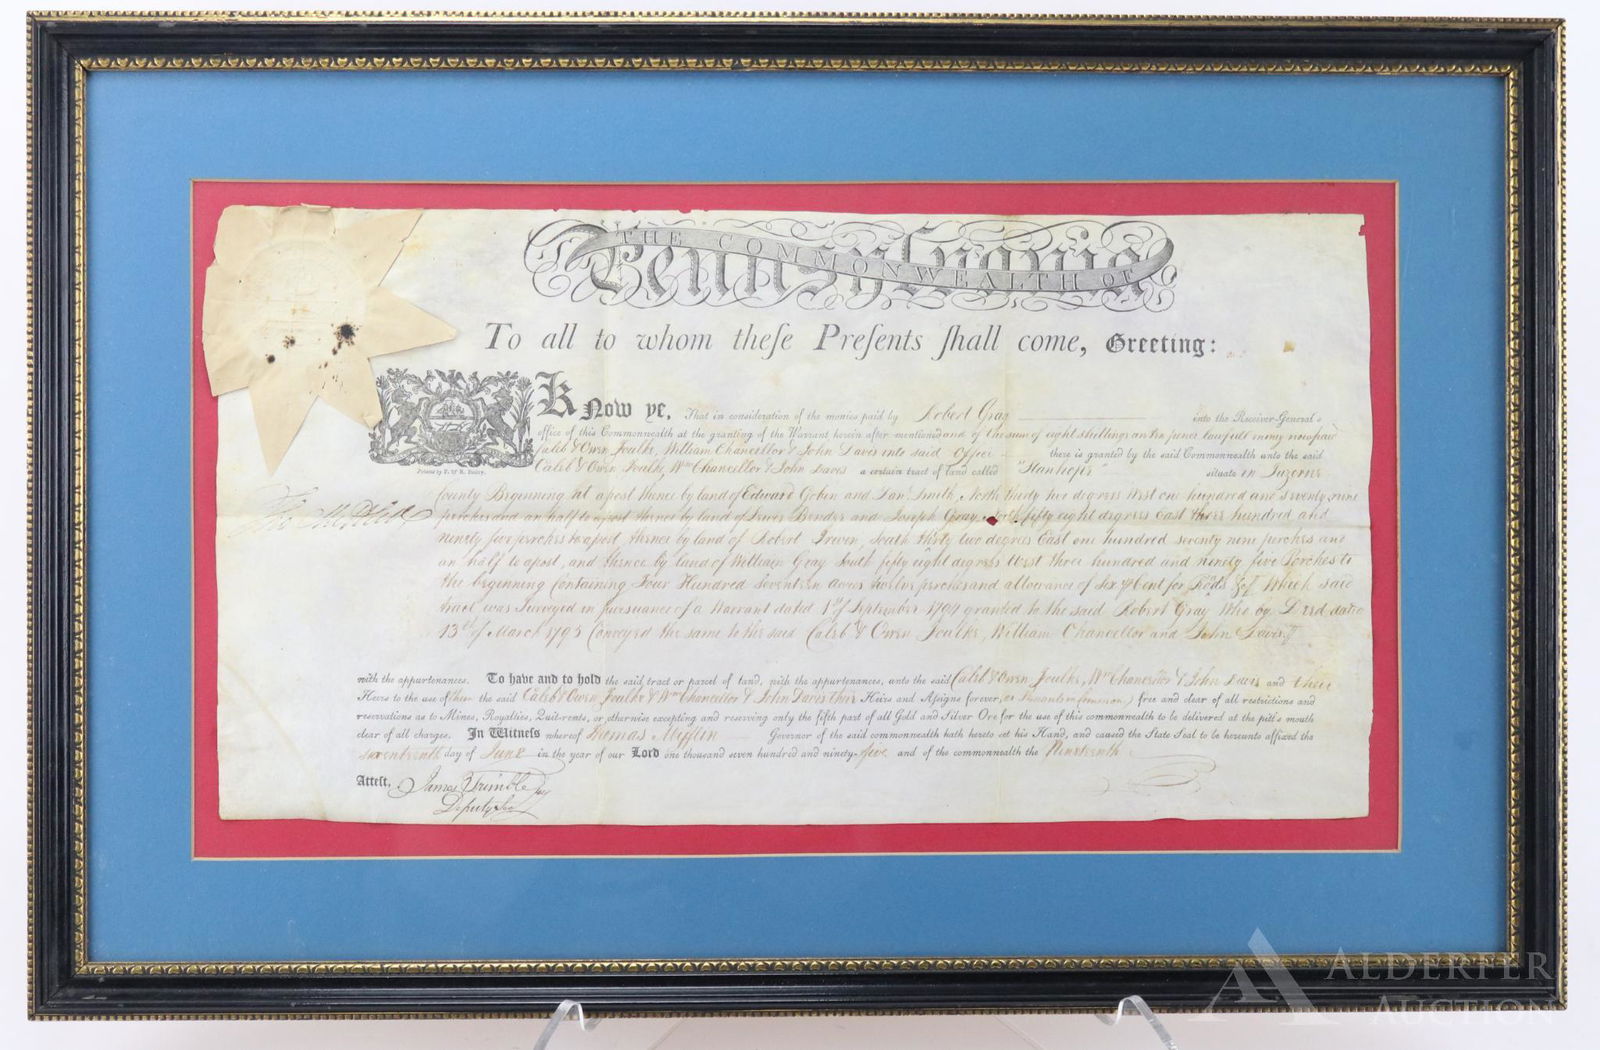 THE COMMONWEALTH OF
Pennsylvania
To all to whom theſe Preſents ſhall come, Greeting:
Know ye, That in consideration of the monies paid by Robert Gray into the Receiver-General's
office of this Commonwealth at the granting of the Warrant herein after mentioned and of the sum of eight shillings an lawfull money now paid
Caleb & Owen Foulke, William Chancellor & John Davis into said Office there is granted by the said Commonwealth unto the said
Caleb & Owen Foulke, Wm Chancellor & John Davis a certain tract of land called "Stanhope" situate in Luzerne
Printed by F. & R. Bailey.
County Beginning at a post thence by land of Edward Gobin and Dan. Smith, North thirty two degrees West one hundred and seventy nine
perches and an half to a post thence by land of Lewis Bender and Joseph Gray North fifty eight degrees East three hundred and
Tho Mifflin
ninety five perches to a post thence by land of Robert Irwin, South thirty two degrees East one hundred seventy nine perches and
an half to a post, and thence by land of William Gray South fifty eight degrees West three hundred and ninety five Perches to
the beginning Containing Four Hundred Seventeen acres twelve perches and allowance of six ⅌ Cent for Roads &c Which said
tract was Surveyed in pursuance of a Warrant dated 1st of September 1794 granted to the said Robert Gray Who by Deed dated
13th of March 1795 Conveyed the same to the said Caleb & Owen Foulke, William Chancellor and John Davis
with the appurtenances. To have and to hold the said tract or parcel of land, with the appurtenances, unto the said Caleb & Owen Foulke, Wm Chancellor & John Davis and their
Heirs to the use of them the said Caleb & Owen Foulke & Wm Chancellor & John Davis their Heirs and Aſſigns forever, as Tenants in common, free and clear of all restrictions and
reservations as to Mines, Royalties, Quit-rents, or otherwise excepting and reserving only the fifth part of all Gold and Silver Ore for the use of this commonwealth to be delivered at the pitt's mouth
clear of all charges. In Witneſs whereof Thomas Mifflin Governor of the said commonwealth hath hereto set his Hand, and caused the State Seal to be hereunto affixed the
seventeenth day of June in the year of our Lord one thousand seven hundred and ninety-five and of the commonwealth the Nineteenth
Atteſt. James Trimble
Deputy Secy
ALDERFER
AUCTION